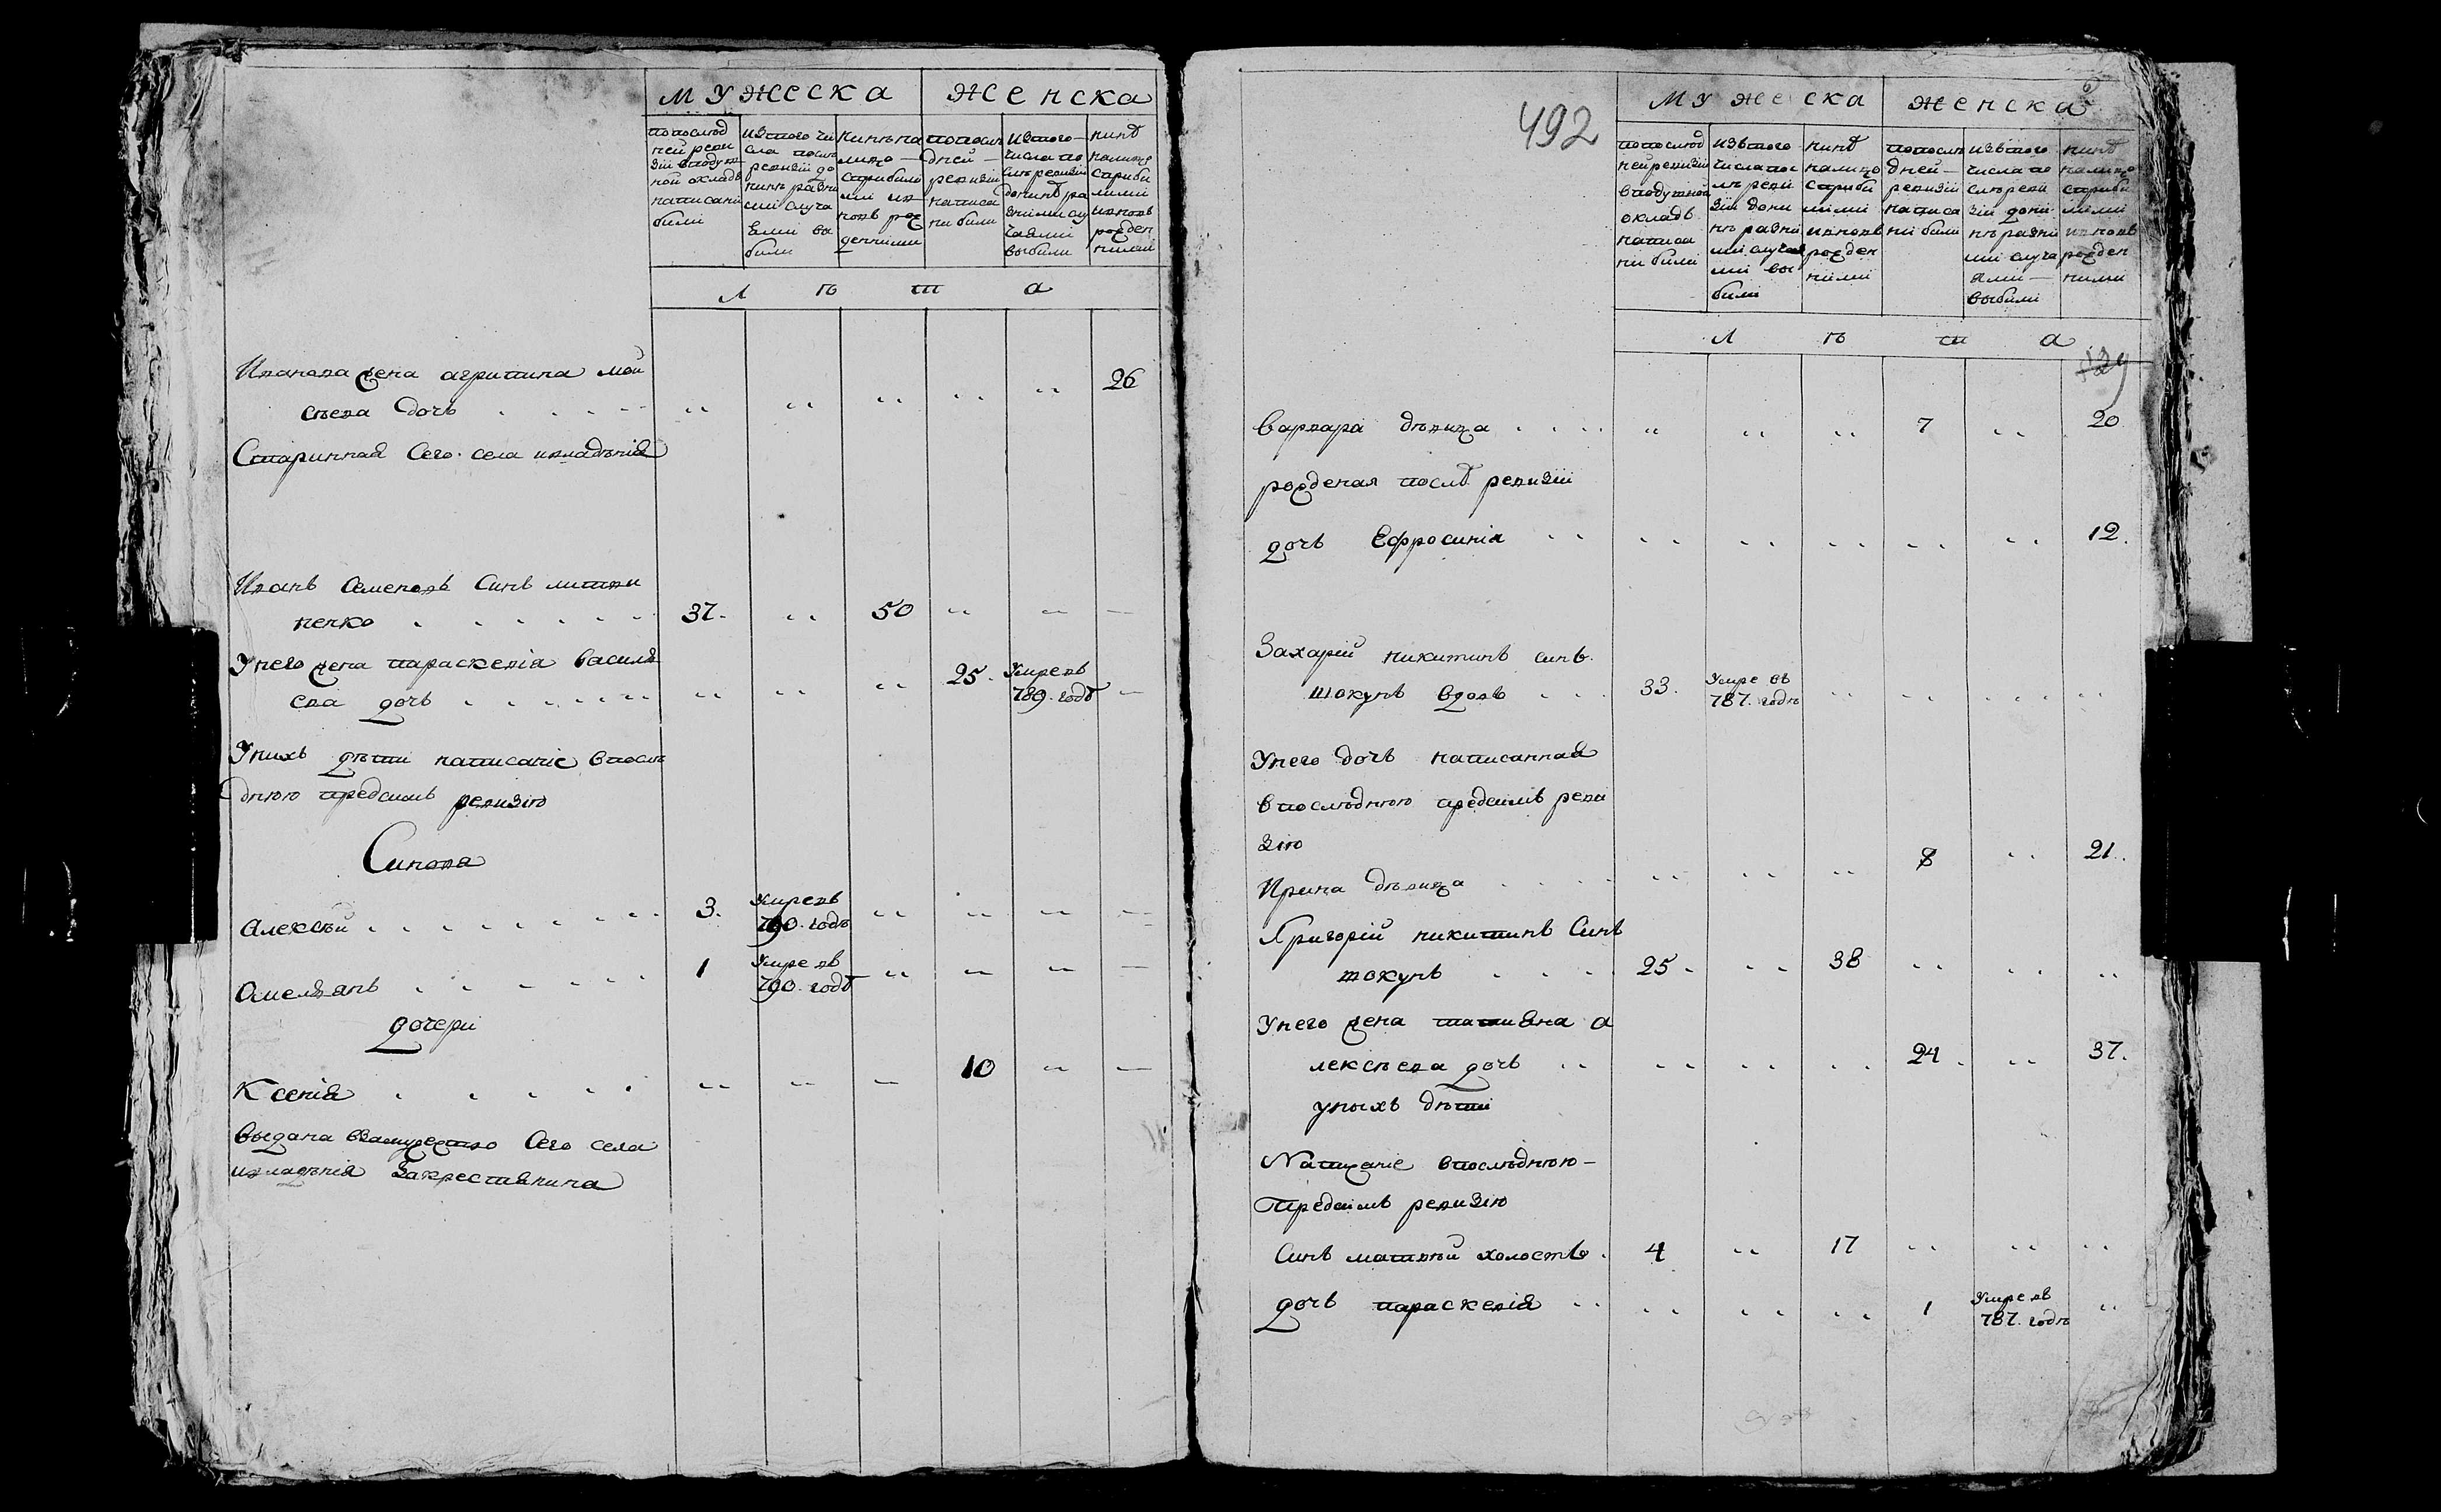 мужеска женска
попослѣд
ней реви
зіи вподуш
ной окладъ
написани
были
изтого чи
сла послѣ
ревизіи до
нинѣ разни
ми случа
ями вы
были
нинѣ на
лицо —
старибили
ми и в
новъ рож
денними
попослѣ
дней —
ревизіи
написа
ни били
изтого —
числа по
слѣ ревизіи
донинѣ ра
зними слу
чаями
выбили
нинѣ
налицо
стариби
лими
ивновъ
рожден
ними
л ѣ т а
Иванова жена агрипина мой
сѣева дочь 26
Старинная Сего села ивладѣнія
Иванъ Семеновъ Синъ литви
ненко 37. 50
Унего жена параскевія василѣ
ева дочь 25. Умре въ
789. годѣ
Унихъ дѣти написание впослѣ
днюю предсимъ ревизію
Синова
Алексѣй 3. Умре въ
790. годѣ
Омелянъ 1 Умре въ
790. годѣ
дочери
Ксенія 10
выдана взамужество Сего села
ивладѣнія Закрестянина
492
мужеска женска
попослѣд
ней ревизіи
вподушной
окладъ
написа
ни били
изътого
числа пос
лѣ реви
зіи дони
нѣ разни
ми случая
ми вы
били
нинѣ
налицо
стариби
лими
ивновъ
рожден
ними
попослѣ
дней —
ревизіи
написа
ни били
изътого
числа по
слѣ реви
зіи дони
нѣ разни
ми случа
ями —
выбили
нинѣ
налицо
стариби
лими
ивновъ
рожден
ними
л ѣ т а
варвара дѣвица 7 20
рожденая послѣ ревизіи
дочь Ефросинія 12.
Захарій никитинъ синъ.
токунъ вдовъ 33. Умре въ
787. годѣ
Унего дочь написанная
впослѣднюю предсимъ реви
зію
Ирина дѣвица 8 21.
Григорій никитинъ Синъ
токунъ 25. 38
Унего жена татияна а
лексѣева дочь 24. 37.
унихъ дѣти
Написание впослѣднюю —
предсимъ ревизію
Синъ матвѣй холостъ 4 17
дочь параскевія 1 Умре въ
787. годѣ